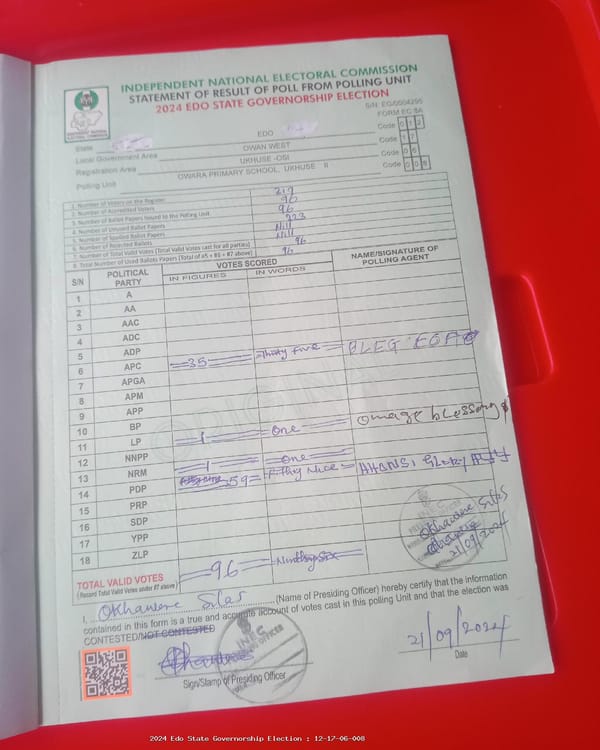 INDEPENDENT NATIONAL ELECTORAL COMMISSION
STATEMENT OF RESULT OF POLL FROM POLLING UNIT
2024 EDO STATE GOVERNORSHIP ELECTION
FORM EC 8A
State EDO Code 012
Local Government Area OWAN WEST Code 17
Registration Area UKHUSE -OSI Code 06
Polling Unit OWARA PRIMARY SCHOOL, UKHUSE II Code 008
1. Number of Voters on the Register
2. Number of Accredited Voters 96
3. Number of Ballot Papers Issued to the Polling Unit
4. Number of Unused Ballot Papers
5. Number of Spoiled Ballot Papers Nill
6. Number of Rejected Ballots Nill
7. Number of Total Valid Votes (Total Valid Votes cast for all parties) 96
8. Total Number of Used Ballots Papers (Total of #5 + #6 + #7 above) 96
S/N POLITICAL PARTY VOTES SCORED NAME/SIGNATURE OF POLLING AGENT
IN FIGURES IN WORDS
1 A
2 AA
3 AAC
4 ADC
5 ADP
6 APC 35 Thirty five
7 APGA
8 APM
9 APP
10 BP
11 LP 1 One Omage blessing
12 NNPP
13 NRM 1 One
14 PDP 59
15 PRP
16 SDP
17 YPP
18 ZLP
TOTAL VALID VOTES 96
(Record Total Valid Votes under #7 above)
I, Okhawere Silas (Name of Presiding Officer) hereby certify that the information
contained in this form is a true and accurate account of votes cast in this polling Unit and that the election was
CONTESTED/NOT CONTESTED
21/09/2024
Sign/Stamp of Presiding Officer Date
2024 Edo State Governorship Election : 12-17-06-008